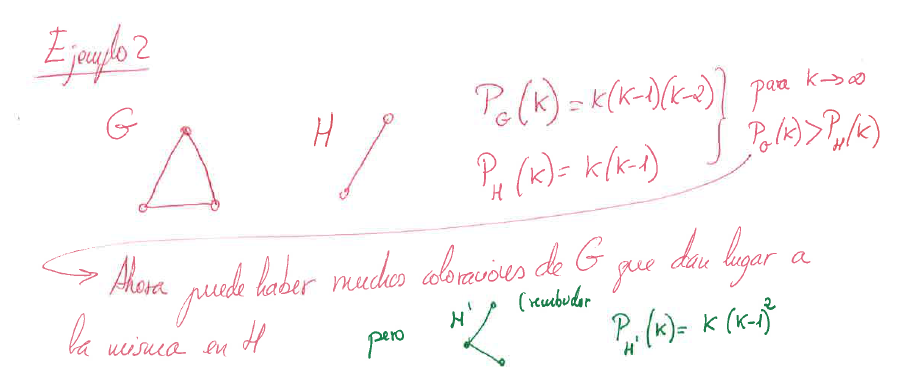 Ejemplo 2
G
H
P_G(k) = k(k-1)(k-2)
P_H(k) = k(k-1)
para k→∞
P_G(k) > P_H(k)
→ Ahora puede haber muchas coloraciones de G que dan lugar a
la misma en H
pero H'
P_H'(k) = k(k-1)²